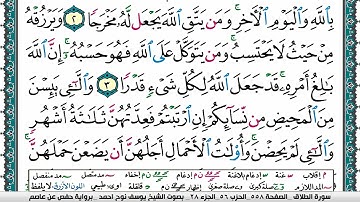 بِٱللَّهِ وَٱلۡيَوۡمِ ٱلۡأٓخِرِۚ وَمَن يَتَّقِ ٱللَّهَ يَجۡعَل لَّهُۥ مَخۡرَجٗا ٢ وَيَرۡزُقۡهُ
مِنۡ حَيۡثُ لَا يَحۡتَسِبُۚ وَمَن يَتَوَكَّلۡ عَلَى ٱللَّهِ فَهُوَ حَسۡبُهُۥٓۚ إِنَّ ٱللَّهَ
بَٰلِغُ أَمۡرِهِۦۚ قَدۡ جَعَلَ ٱللَّهُ لِكُلِّ شَيۡءٖ قَدۡرٗا ٣ وَٱلَّٰٓـِٔي يَئِسۡنَ
مِنَ ٱلۡمَحِيضِ مِن نِّسَآئِكُمۡ إِنِ ٱرۡتَبۡتُمۡ فَعِدَّتُهُنَّ ثَلَٰثَةُ أَشۡهُرٖ
وَٱلَّٰٓـِٔي لَمۡ يَحِضۡنَۚ وَأُوْلَٰتُ ٱلۡأَحۡمَالِ أَجَلُهُنَّ أَن يَضَعۡنَ حَمۡلَهُنَّۚ
سورة الطلاق الصفحة ٥٥٨ الحزب ٥٦ الجزء ٢٨ بصوت الشيخ يوسف نوح احمد برواية حفص عن عاصم